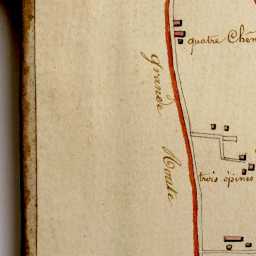 quatre Chên
grande Route
trois épines